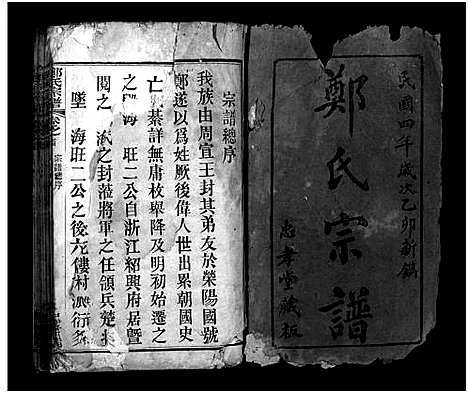 民國四年歲次乙卯新鐫
鄭氏宗譜
忠孝堂藏板
宗譜總序
我族由周宣王封其弟友於榮陽國號
鄭遂以爲姓厥後偉人世出累朝國史
亡綦詳無庸枚舉降及明初始遷之
之 海 旺二公自浙江紹興府居暨
閱之 派之封蒞將軍之任領兵楚
墜 海旺二公之後六傳村 衍多
鄭氏宗譜 卷之首 宗譜總序